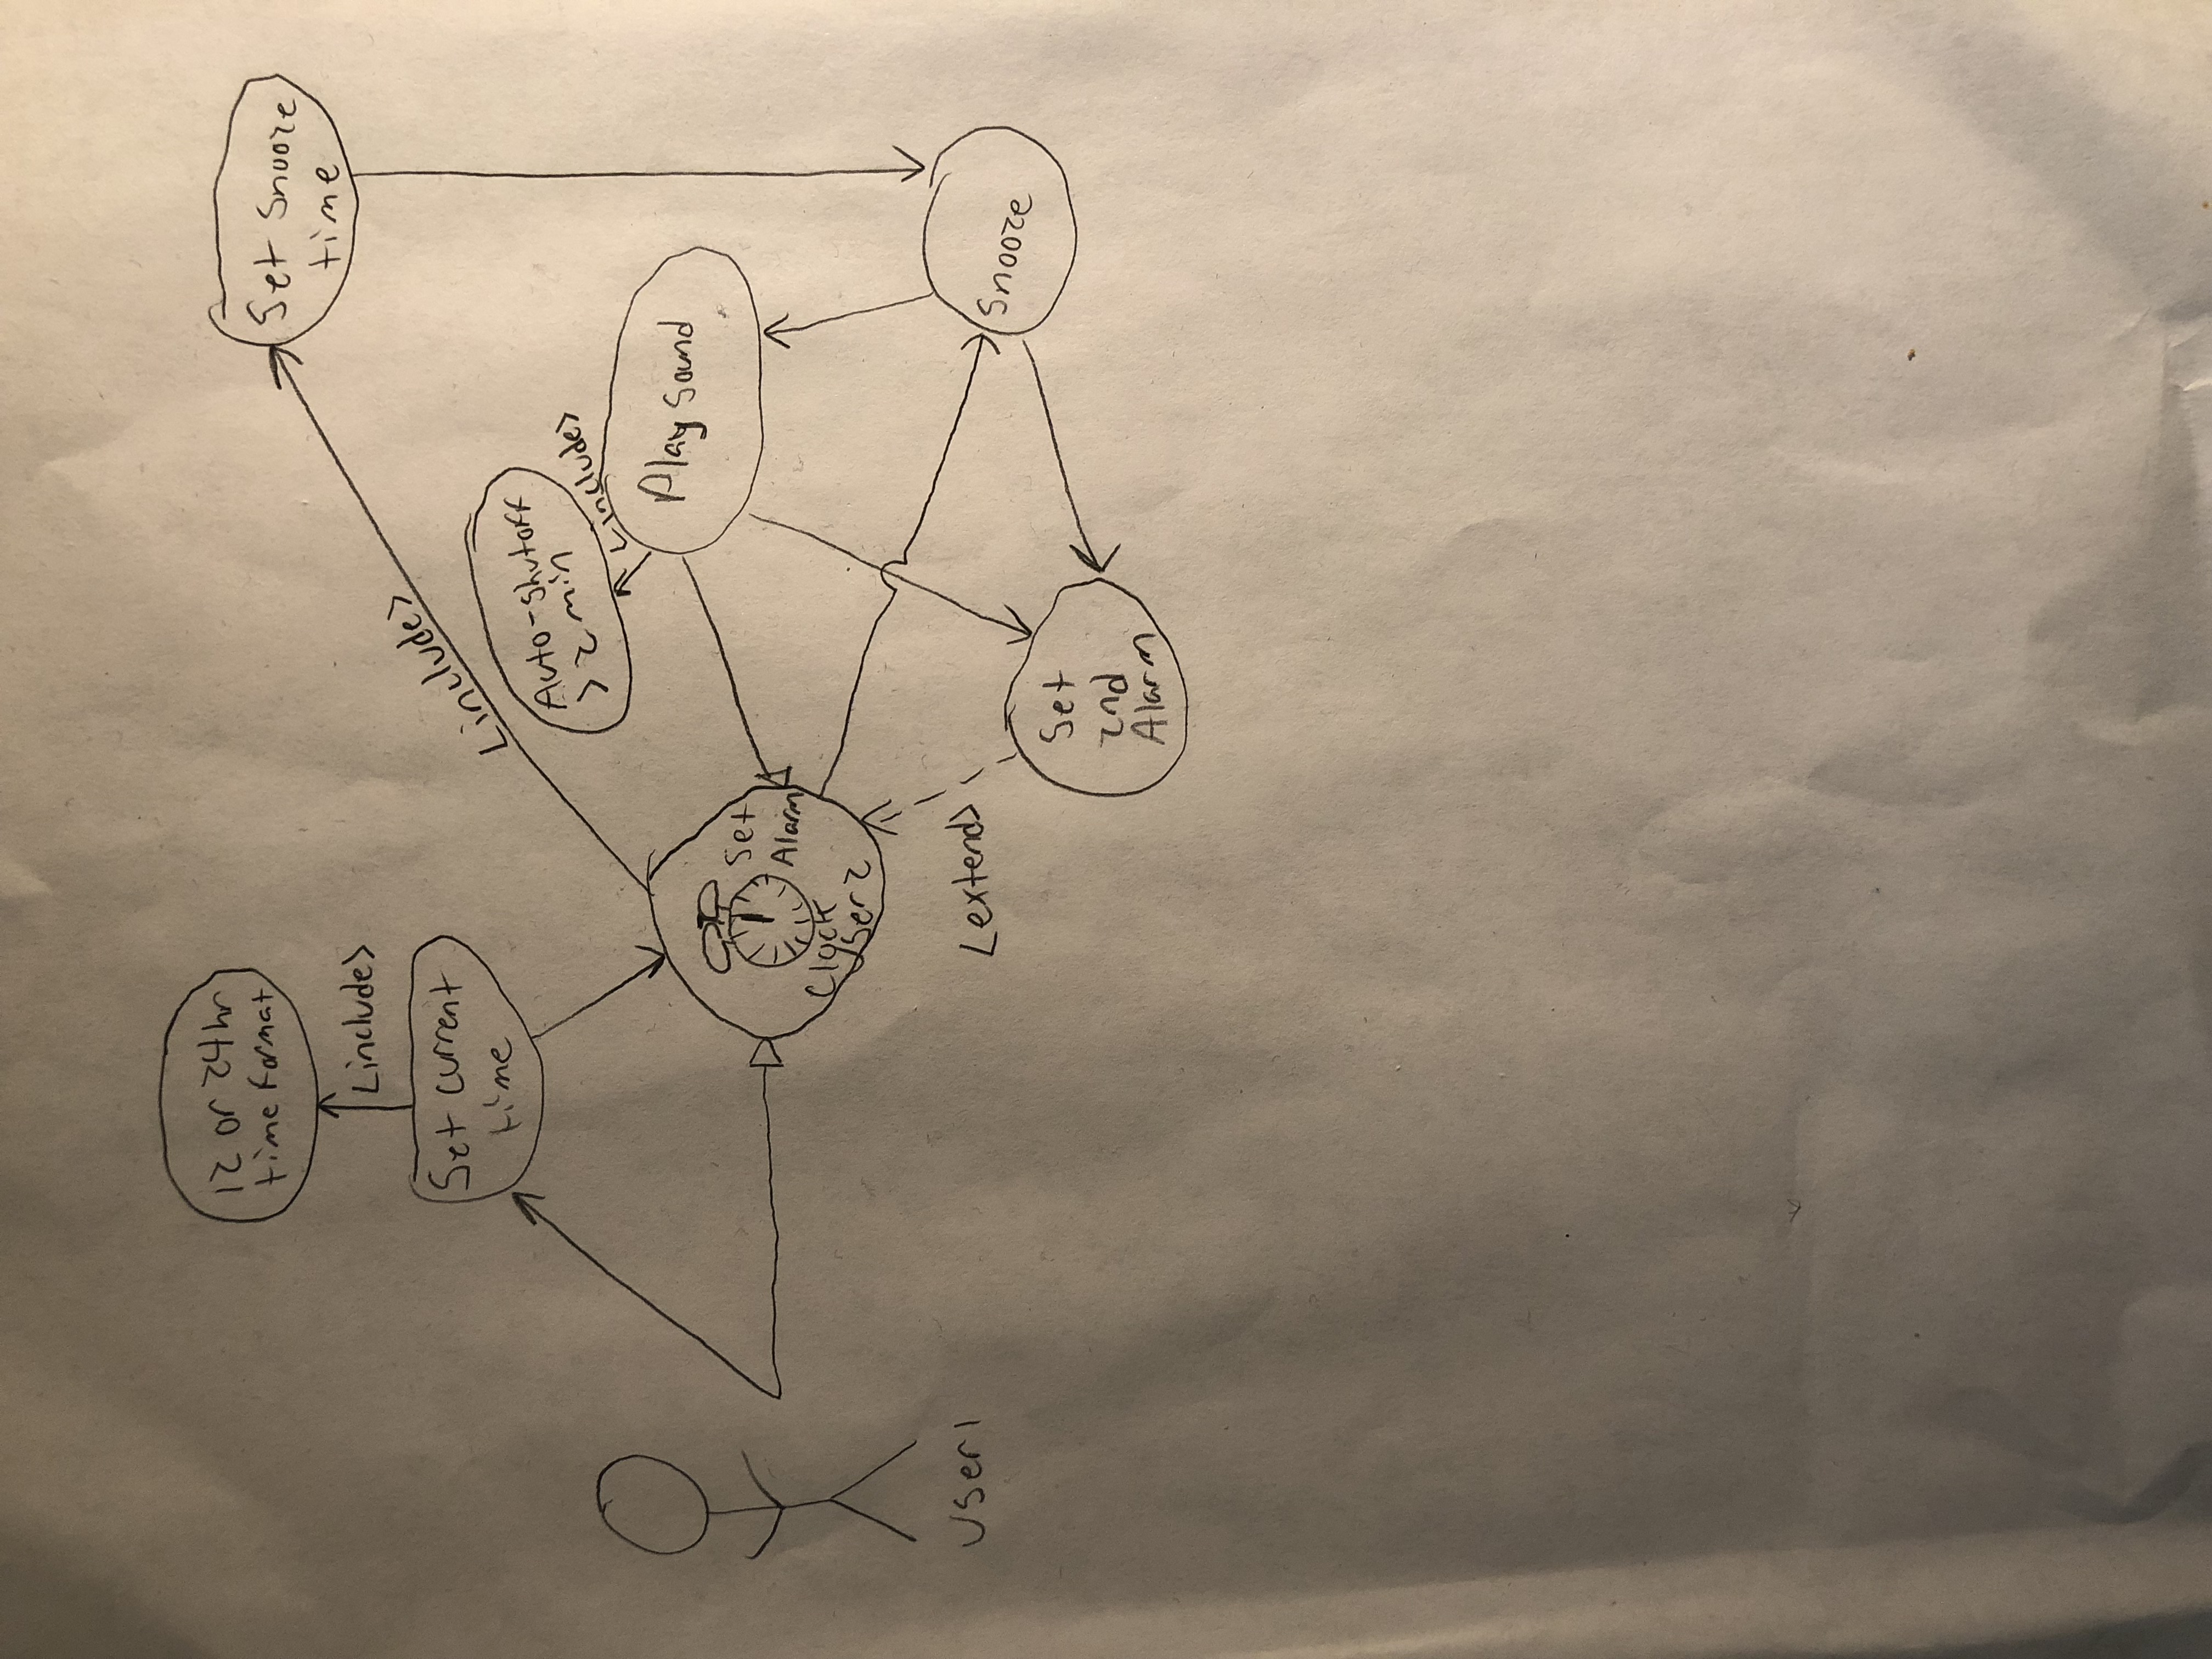 12 or 24hr
time format
<include>
Set current
time
Set Snooze
time
<include>
Auto-shutoff
> 2 min
<include>
Play Sound
Set
Alarm
Clock
User 2
User 1
<extend>
Snooze
Set
2nd
Alarm